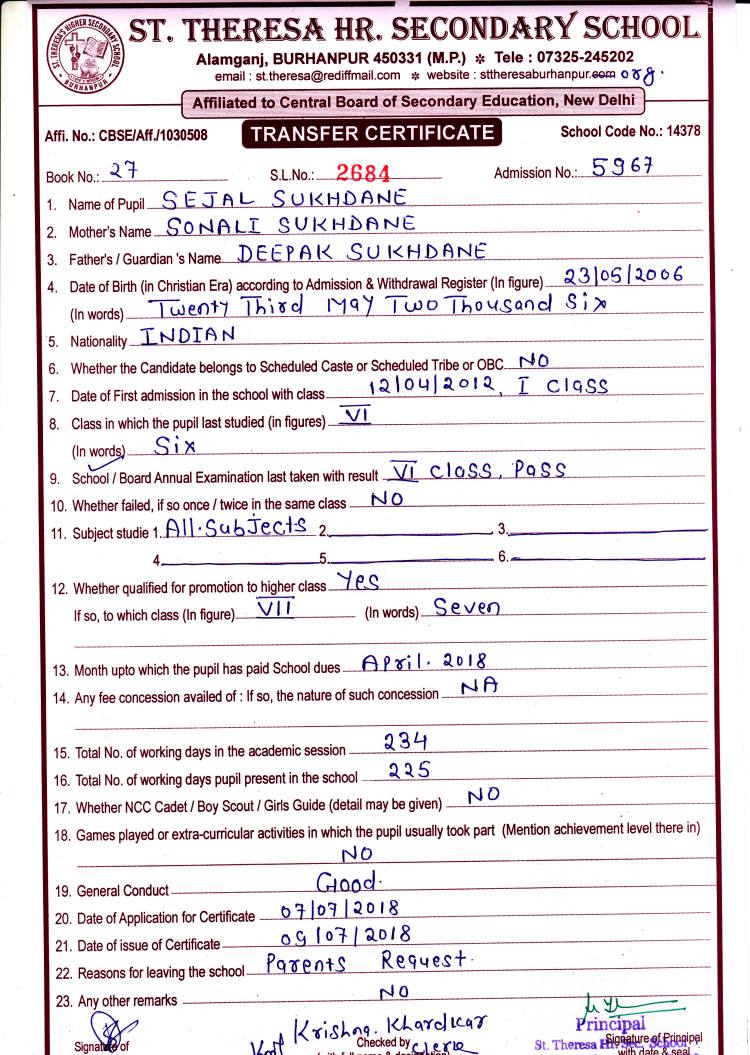 ST. THERESA'S HIGHER SECONDARY SCHOOL
BURHANPUR
ST. THERESA HR. SECONDARY SCHOOL
Alamganj, BURHANPUR 450331 (M.P.) ✻ Tele : 07325-245202
email : st.theresa@rediffmail.com ✻ website : sttheresaburhanpur.com org.
Affiliated to Central Board of Secondary Education, New Delhi
Affi. No.: CBSE/Aff./1030508 TRANSFER CERTIFICATE School Code No.: 14378
Book No.: 27 S.L.No.: 2684 Admission No.: 5967
1. Name of Pupil SEJAL SUKHDANE
2. Mother's Name SONALI SUKHDANE
3. Father's / Guardian 's Name DEEPAK SUKHDANE
4. Date of Birth (in Christian Era) according to Admission & Withdrawal Register (In figure) 23/05/2006
(In words) Twenty Third May Two Thousand Six
5. Nationality INDIAN
6. Whether the Candidate belongs to Scheduled Caste or Scheduled Tribe or OBC NO
7. Date of First admission in the school with class 12/04/2012, I Class
8. Class in which the pupil last studied (in figures) VI
(In words) Six
9. School / Board Annual Examination last taken with result VI Class, Pass
10. Whether failed, if so once / twice in the same class NO
11. Subject studie 1. All.Subjects 2. 3.
4. 5. 6.
12. Whether qualified for promotion to higher class Yes
If so, to which class (In figure) VII (In words) Seven
13. Month upto which the pupil has paid School dues April. 2018
14. Any fee concession availed of : If so, the nature of such concession NA
15. Total No. of working days in the academic session 234
16. Total No. of working days pupil present in the school 225
17. Whether NCC Cadet / Boy Scout / Girls Guide (detail may be given) NO
18. Games played or extra-curricular activities in which the pupil usually took part (Mention achievement level there in)
NO
19. General Conduct Good.
20. Date of Application for Certificate 07/07/2018
21. Date of issue of Certificate 09/07/2018
22. Reasons for leaving the school Parents Request.
23. Any other remarks NO
Krishna. Khardkar
Principal
Signature of Checked by Clerk St. Theresa Hr. Sec. School Signature of Principal
with date & seal